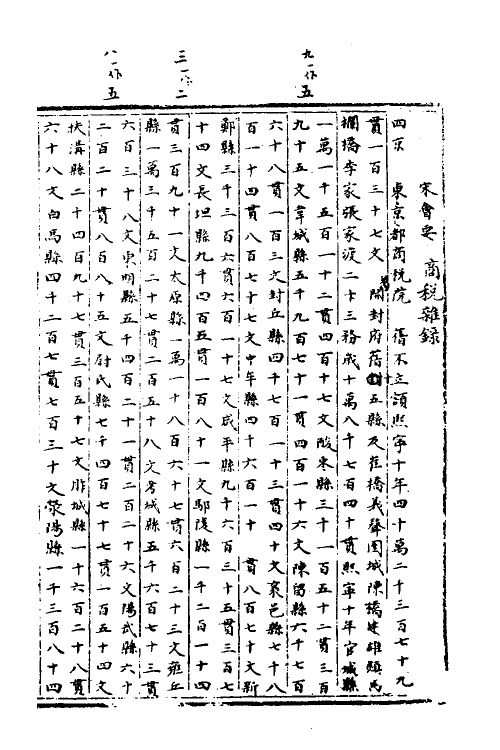 宋會要 商稅雜錄
四京 東京都商稅院 舊不立額熙寧十年四十萬二千三百七十九
貫一百三十七文 開封府舊五縣及崔橋義聲圉城陳橋建雄鎮馬
欄橋李家張家渡二十三務歲十萬八千七百四十貫熙寧十年官城縣
一萬一千五百一十二貫四百十七文酸棗縣三千一百五十二貫三百
九十五文韋城縣五千九百七十一貫四百一十六文陳留縣六千七百
六十八貫一百三文封丘縣四千七百一十三貫四十文襄邑縣七千八
百一十四貫八百七十七文中牟縣四千六百一十 貫八百七十文新
鄭縣三千三百六貫六百一十七文咸平縣九千六百三十五貫三百七
十四文長垣縣九千四百五貫一百八十一文鄢陵縣一千二百一十四
貫三百九十一文太康縣一萬一千八百六十七貫六百二十三文雍丘
縣一萬三千五百二十七貫二百五十八文考城縣五千六百七十三貫
六百三十八文東明縣五千四百二十一貫二百二十六文陽武縣六千
二百二十貫八百八十五文尉氏縣七千四百七十七貫一百五十四文
扶溝縣二千四百九十七貫三百五十七文胙城縣一千六百二十八貫
六十八文白馬縣四千二百七貫七百三十文滎陽縣一千三百八十四
九一作五
三一作二
八一作五